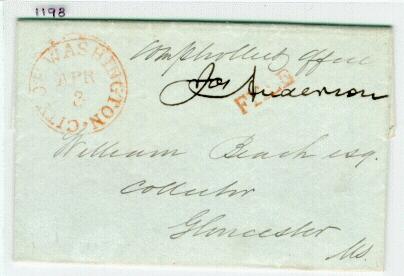 1198
CITY OF WASHINGTON
APR
3
Comptrollers Office
Jos Anderson
FREE
William Beach esq.
Collector
Gloucester
Ms.